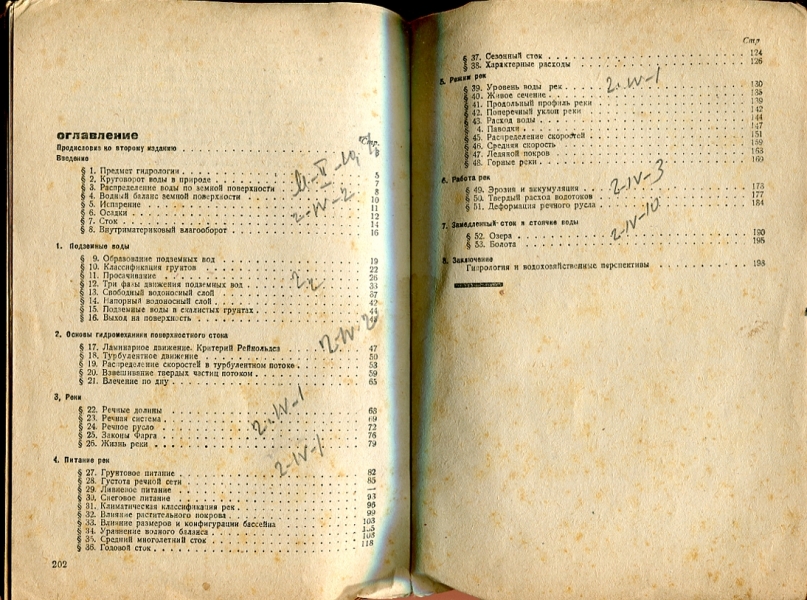 оглавление
Стр.
Предисловие ко второму изданию
Введение
§ 1. Предмет гидрологии 5
§ 2. Круговорот воды в природе 7
§ 3. Распределение воды по земной поверхности 7
§ 4. Водный баланс земной поверхности 8
§ 5. Испарение 10
§ 6. Осадки 11
§ 7. Сток 12
§ 8. Внутриматериковый влагооборот 16
1. Подземные воды
§ 9. Образование подземных вод 19
§ 10. Классификация грунтов 22
§ 11. Просачивание 26
§ 12. Три фазы движения подземных вод 33
§ 13. Свободный водоносный слой 37
§ 14. Напорный водоносный слой 42
§ 15. Подземные воды в скалистых грунтах 44
§ 16. Выход на поверхность
2. Основы гидромеханики поверхностного стока
§ 17. Ламинарное движение. Критерий Рейнольдса 47
§ 18. Турбулентное движение 50
§ 19. Распределение скоростей в турбулентном потоке 53
§ 20. Взвешивание твердых частиц потоком 59
§ 21. Влечение по дну 65
3. Реки
§ 22. Речные долины 68
§ 23. Речная система 69
§ 24. Речное русло 72
§ 25. Законы Фарга 76
§ 26. Жизнь реки 79
4. Питание рек
§ 27. Грунтовое питание 82
§ 28. Густота речной сети 85
§ 29. Ливневое питание —
§ 30. Снеговое питание 93
§ 31. Климатическая классификация рек 96
§ 32. Влияние растительного покрова 99
§ 33. Влияние размеров и конфигурации бассейна 103
§ 34. Уравнение водного баланса
§ 35. Средний многолетний сток 108
§ 36. Годовой сток 118
202
Стр.
§ 37. Сезонный сток 124
§ 38. Характерные расходы 126
5. Режим рек
§ 39. Уровень воды рек 130
§ 40. Живое сечение 135
§ 41. Продольный профиль реки 139
§ 42. Поперечный уклон реки 142
§ 43. Расход воды 144
§ 4. Паводки 147
§ 45. Распределение скоростей 151
§ 46. Средняя скорость 159
§ 47. Ледяной покров 163
§ 48. Горные реки 169
6. Работа рек
§ 49. Эрозия и аккумуляция 173
§ 50. Твердый расход водотоков 177
§ 51. Деформация речного русла 184
7. Замедленный сток и стоячие воды
§ 52. Озера 190
§ 53. Болота 195
8. Заключение
Гидрология и водохозяйственные перспективы 198
2-IV-2
2-IV-1
2-IV-1
2-IV-3
2-IV-10